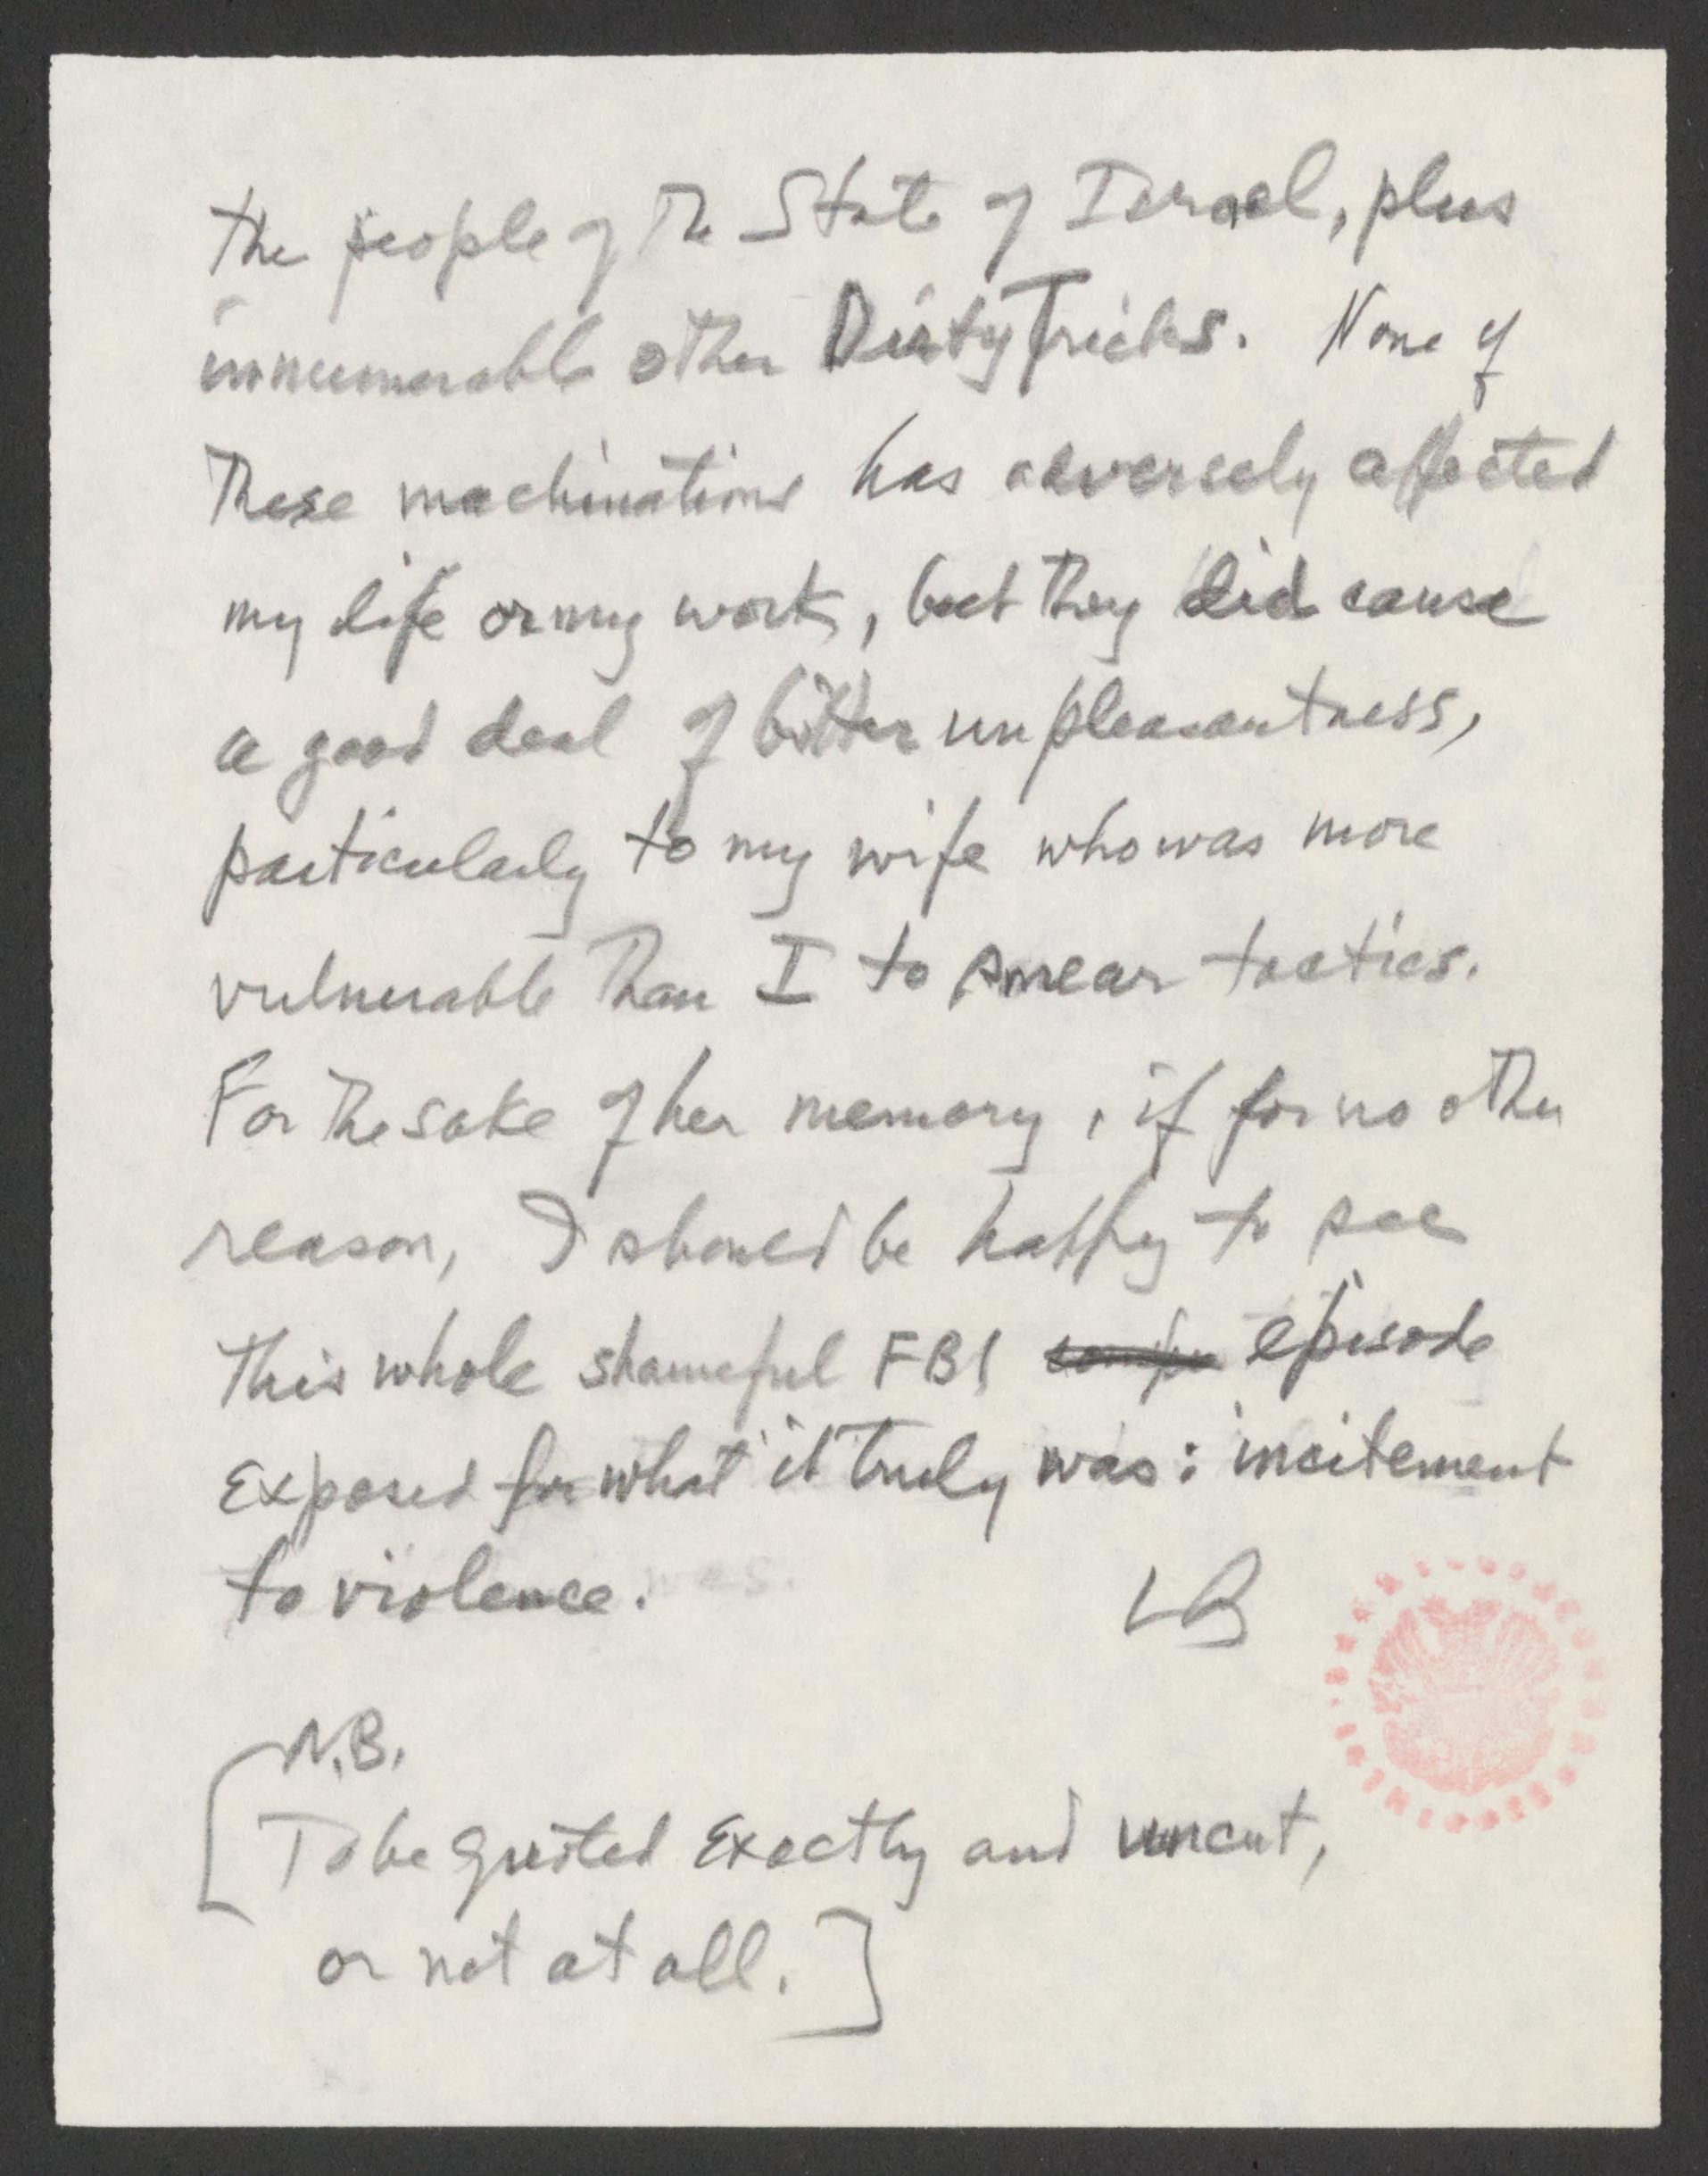 the people of the State of Israel, plus
innumerable other Dirty Tricks. None of
These machinations has adversely affected
my life or my work, but they did cause
a good deal of bitter unpleasantness,
particularly to my wife who was more
vulnerable Than I to smear tactics.
For the sake of her memory, if for no other
reason, I should be happy to see
This whole shameful FBI episode
Exposed for what it truly was: incitement
to violence.
LB
N.B.
[To be quoted Exactly and uncut,
or not at all.]